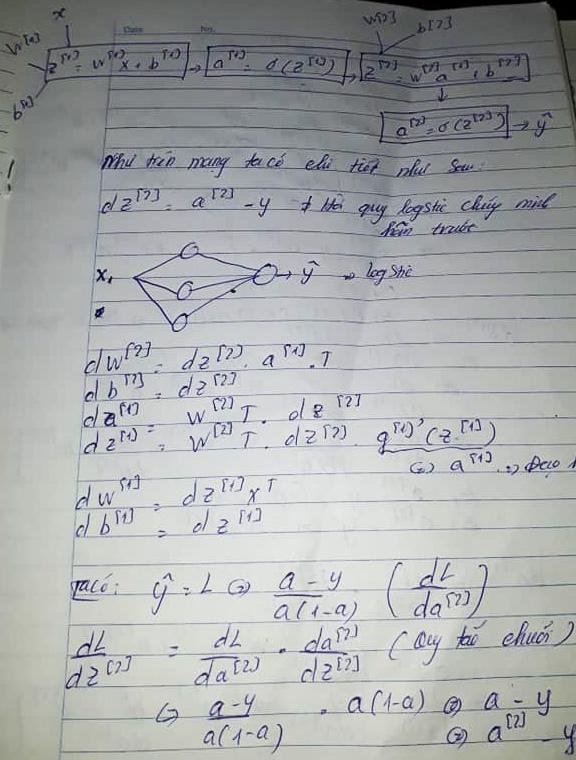 x W[2] b[2]
W[1] z[1] = w[1] x + b[1] → a[1] = σ(z[1]) → z[2] = w[2] a[1] + b[2]
b[1]
a[2] = σ(z[2]) → ŷ
Như trên mạng ta có chi tiết như sau:
dz[2] = a[2] - y # Hồi quy logstic chứng minh
hôm trước
x₁ → ŷ => logstic
dw[2] = dz[2] . a[1] . T
db[2] = dz[2]
da[1] = W[2] T . dz[2]
dz[1] = W[2] T . dz[2] . g[1]' (z[1])
(=) a[1] => Đạo
dw[1] = dz[1] x^T
db[1] = dz[1]
Ta có: ŷ = L (=) a - y / a(1-a) (dL / da[2])
dL / dz[2] = dL / da[2] . da[2] / dz[2] (Quy tắc chuỗi)
(=) a-y / a(1-a) . a(1-a) (=) a - y
(=) a[2] - y